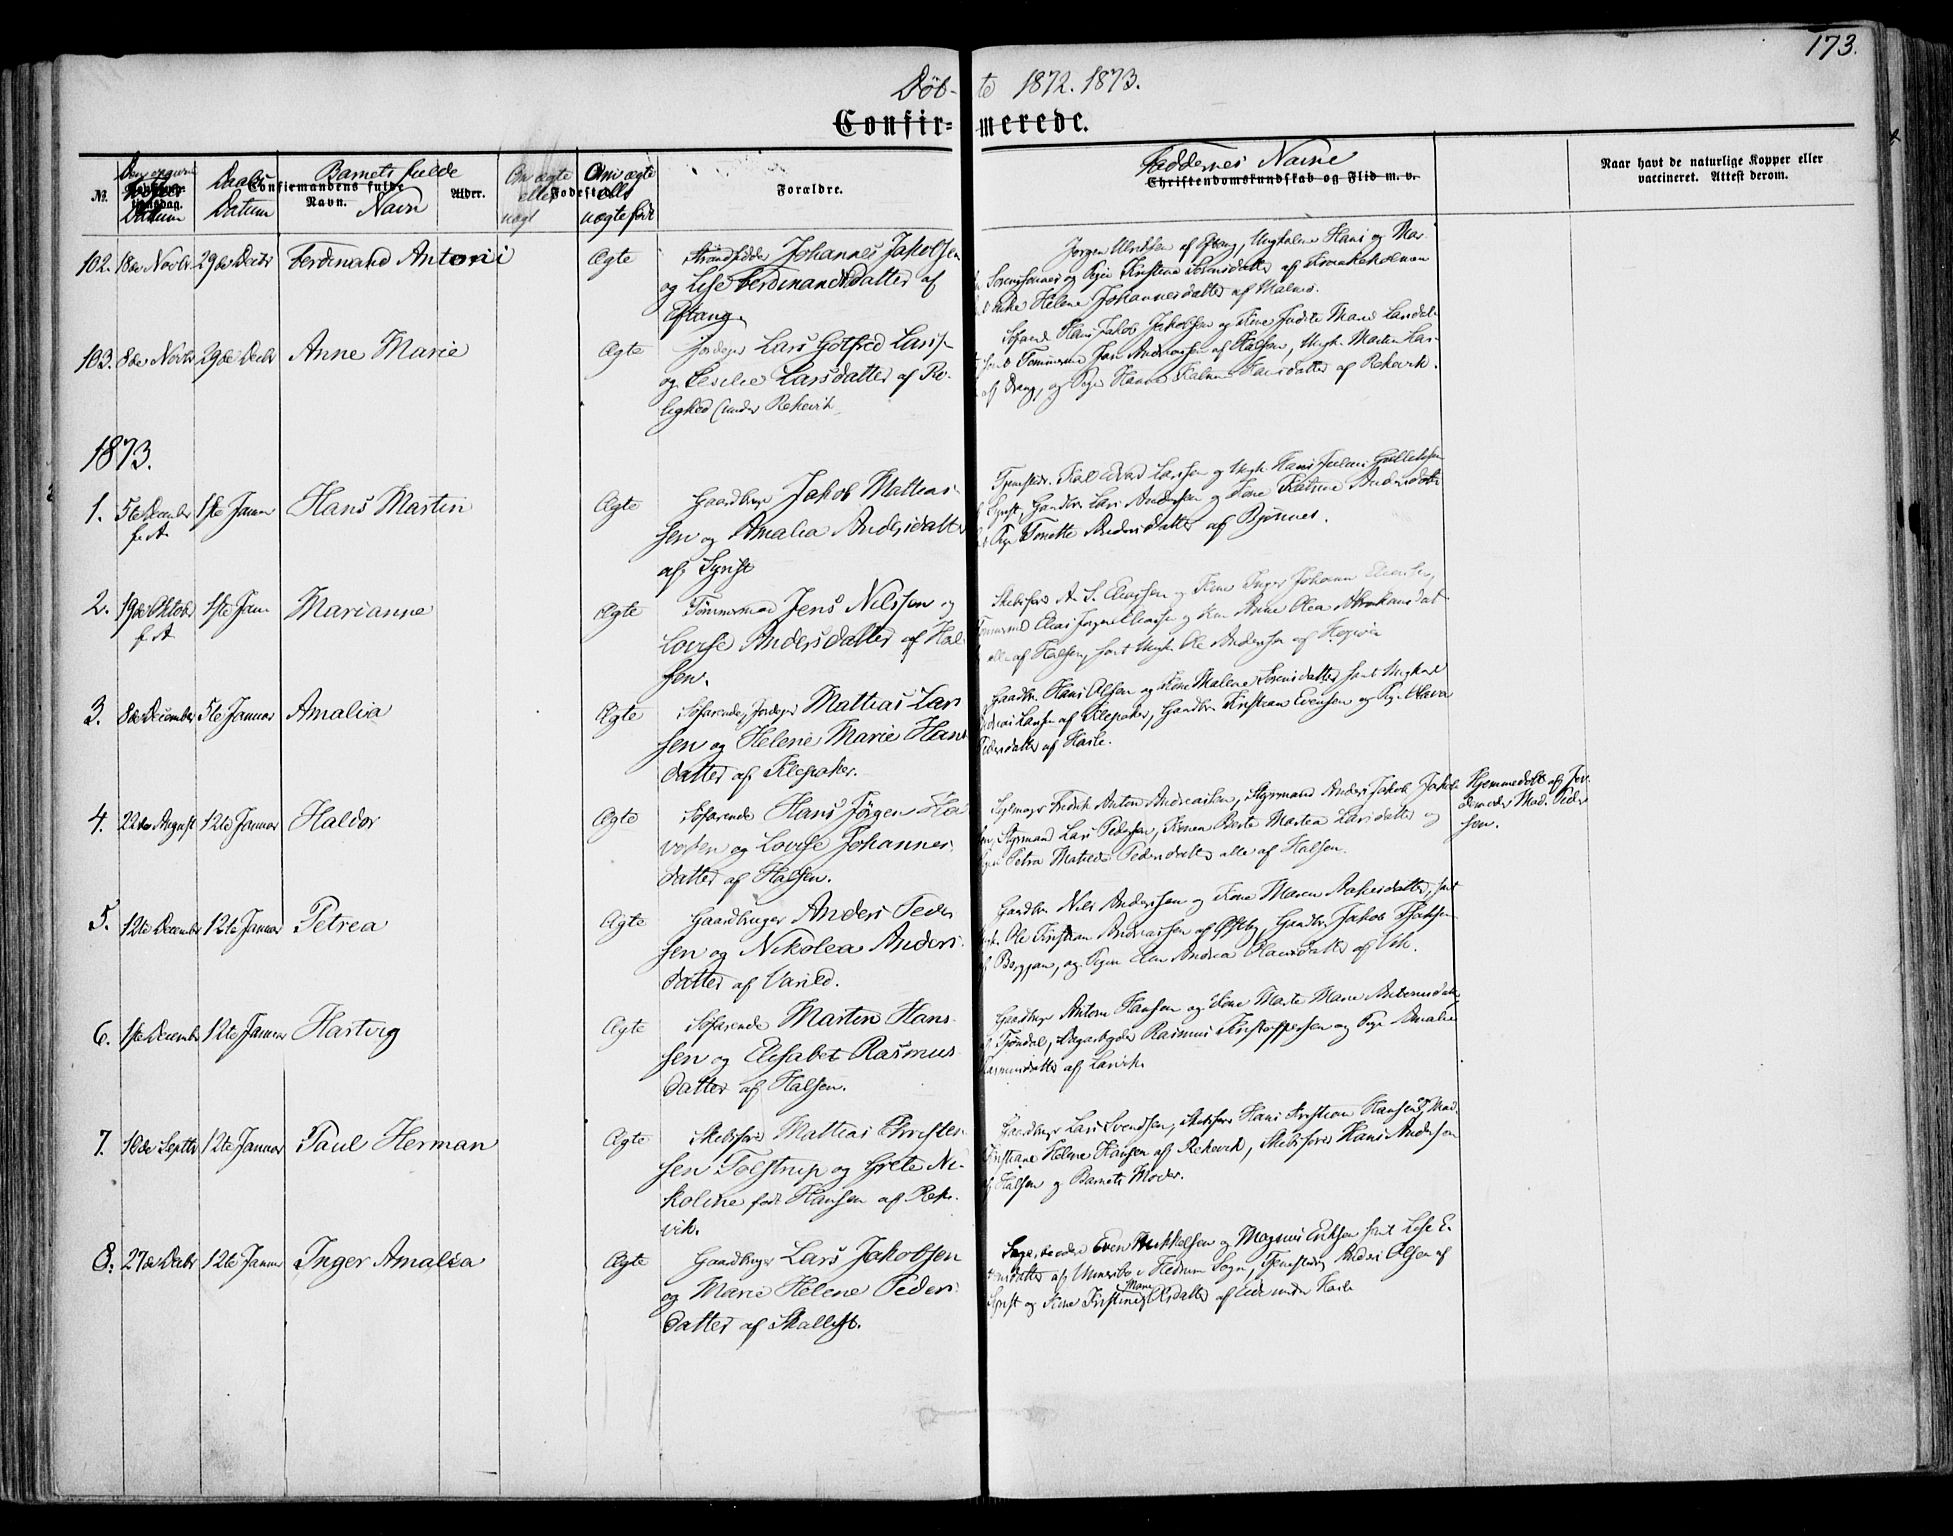 173.
Døb- te 1872. 1873.
Confir- merede.
No. Datum Daabs Datum Barnets fulde Navn Confirmandens fulde Navn. Alder. Om ægte eller uægt Fødested. Om ægte eller uægte født Forældre. Faddernes Navne Christendomskundskab og Flid m. v. Naar havt de naturlige Kopper eller vaccineret. Attest derom.
102. 18de Novbr 29de Decbr Ferdinand Antoni Ægte Strandsidder Johannes Jakobsen
og Lise Ferdinandsdatter af
Eftang.
Jørgen Ulriksen af Eftang, Ungkarlene Hans og
og Pige Kristine Sørensdatter af
Helene Johannesdatter af Malmø.
103. 8de Novbr 29de Decbr Anne Marie Ægte Jordeger Lars Gotfred Lars-
og Cecilie Larsdatter af Ro-
lighed (under Rekevik
Hans Jakob Jakobsen og Kone
Tømmermd Jan Andreassen af Halsen, Ungk. Martin Lar-
af Vrang, og Pige Hanna Hansdatter af Rekevik.
1873.
1. 5te December f. A. 1ste Januar Hans Martin Ægte Gaardbruger Jakob Mathias-
sen og Amalia Andersdatter
af Syrist
Larsen og Ungk. Hans Julius Gulliksen
Syrist, Gaardbr. Lars Andersen og Kone Andersdatter
Pige Tonette Andersdatter af Bjønnes.
2. 19de Oktob f. A. 1ste Jan. Marianne Ægte Tømmermd Jens Nilssen og
Lovise Andersdatter af Hal-
sen.
Skibsfører A. S. Eliassen og Kone Inger Johanne
Tømmermd Elias og Kone Anne Olea Abrahamsdat-
alle af Halsen, samt Ungk. Ole Andersen af
3. 8de December 5te Januar Amalia Ægte Søfarende, Jordeger Mathias Lar
sen og Helene Marie Hans
datter af Klepaker.
Gaardbr. Hans Olsen og Kone Malene Sørensdatter samt Ungkarl
Larsen af Klepaker, Gaardbr. Kristian Evensen og Pige Olava
Pedersdatter af Hasle.
4. 22de August 12te Januar Haldor Ægte Søfarende Hans Jørgen Ha
vorsen og Lovise Johannes-
datter af Halsen.
Seilmager Fredrik Anton Andreassen, Styrmand Anders Jakob Jakob-
sen, Styrmand Lars Pedersen, Konen Berte Martea Larsdatter og
Pigen Petra Matilde Pedersdatter alle af Halsen.
Hjemmedøbt af Jor-
demoder Mad. Peder
sen.
5. 12te December 12te Januar Petrea Ægte Gaardbruger Anders Peder
sen og Nikolea Anders-
datter af Varild.
Gaardbr. Nils Andersen og Kone Maren samt
Ungk. Ole Kristian Andreassen af Østby, Gaardbr. Jakob
Bergan, og Pigen Andrea af Vik.
6. 1ste December 12te Januar Hartvig Ægte Søfarende Martin Hans-
sen og Elisabet Rasmus-
datter af Halsen.
Gaardbruger Anton Hansen og Kone Marte Marie
Rasmus Kristoffersen og Pige Amalie
Rasmusdatter af Larvik.
7. 16de Septbr 12te Januar Paul Herman Ægte Skibsfører Mathias Christen-
sen Tolstrup og Grete Ni-
koline født Hansen af Reke-
vik.
Gaardbruger Lars Svendsen, Skibsfører Hans Kristian Hansen, Mad.
Kristiane Helene Hansen af Rekevik, Skibsfører Hans Andersen
af Halsen og Barnets Moder.
8. 27de Decbr 12te Januar Inger Amalia Ægte Gaardbruger Lars Jakobsen
og Marie Helene Peders-
datter af Skallist.
Sagarbeidere Even Mikkelsen og Magnus Eriksen samt Lise E-
datter af i Hedrum Sogn, Anders Olsen af
Syrist og Kone Kristine Marie Olsdatter af Eide under Hasle